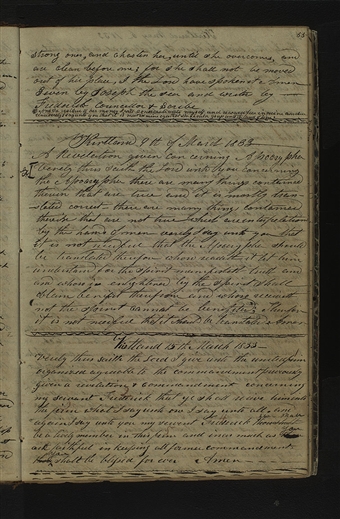 strong ones, and chasten her, until she overcomes, and
are clean before me; for she shall not be moved
out of her place, I the Lord have spoken it Amen
Given by Joseph the seer and wrote by
Frederick Councellor & Scribe
Kirtland 9th of March 1833
A Revelation given concerning Apocryphe
Verely thus saith the Lord unto you concerning
the Apocryphe there are many things contained
therein that are true and it is mostly tran
slated correct there are many things contained
therein that are not true which are interpolations
by the hands of men verely I say unto you that
it is not needful that the Apocryphe should
be translated therefore whoso readeth it let him
understand for the spirit manifesteth truth and
and whoso is enlightened by the spirit shall
obtain benefit therefrom and whoso receiveth
not the spirit cannot be benefited therefore
it is not needful that it should be translated Amen
Kirtland 15th March 1833
Verely thus saith the Lord I give unto the united firm
organized agreeable to the commandment previously
given a revelation & commandment concerning
my servent Frederick that ye shall receive him into
the firm what I say unto one I say unto all and
again I say unto you my servent Frederick thou shalt
be a lively member in this firm and inas much as
art faithful in keeping all former commandments
thou shalt be blessed for ever Amen